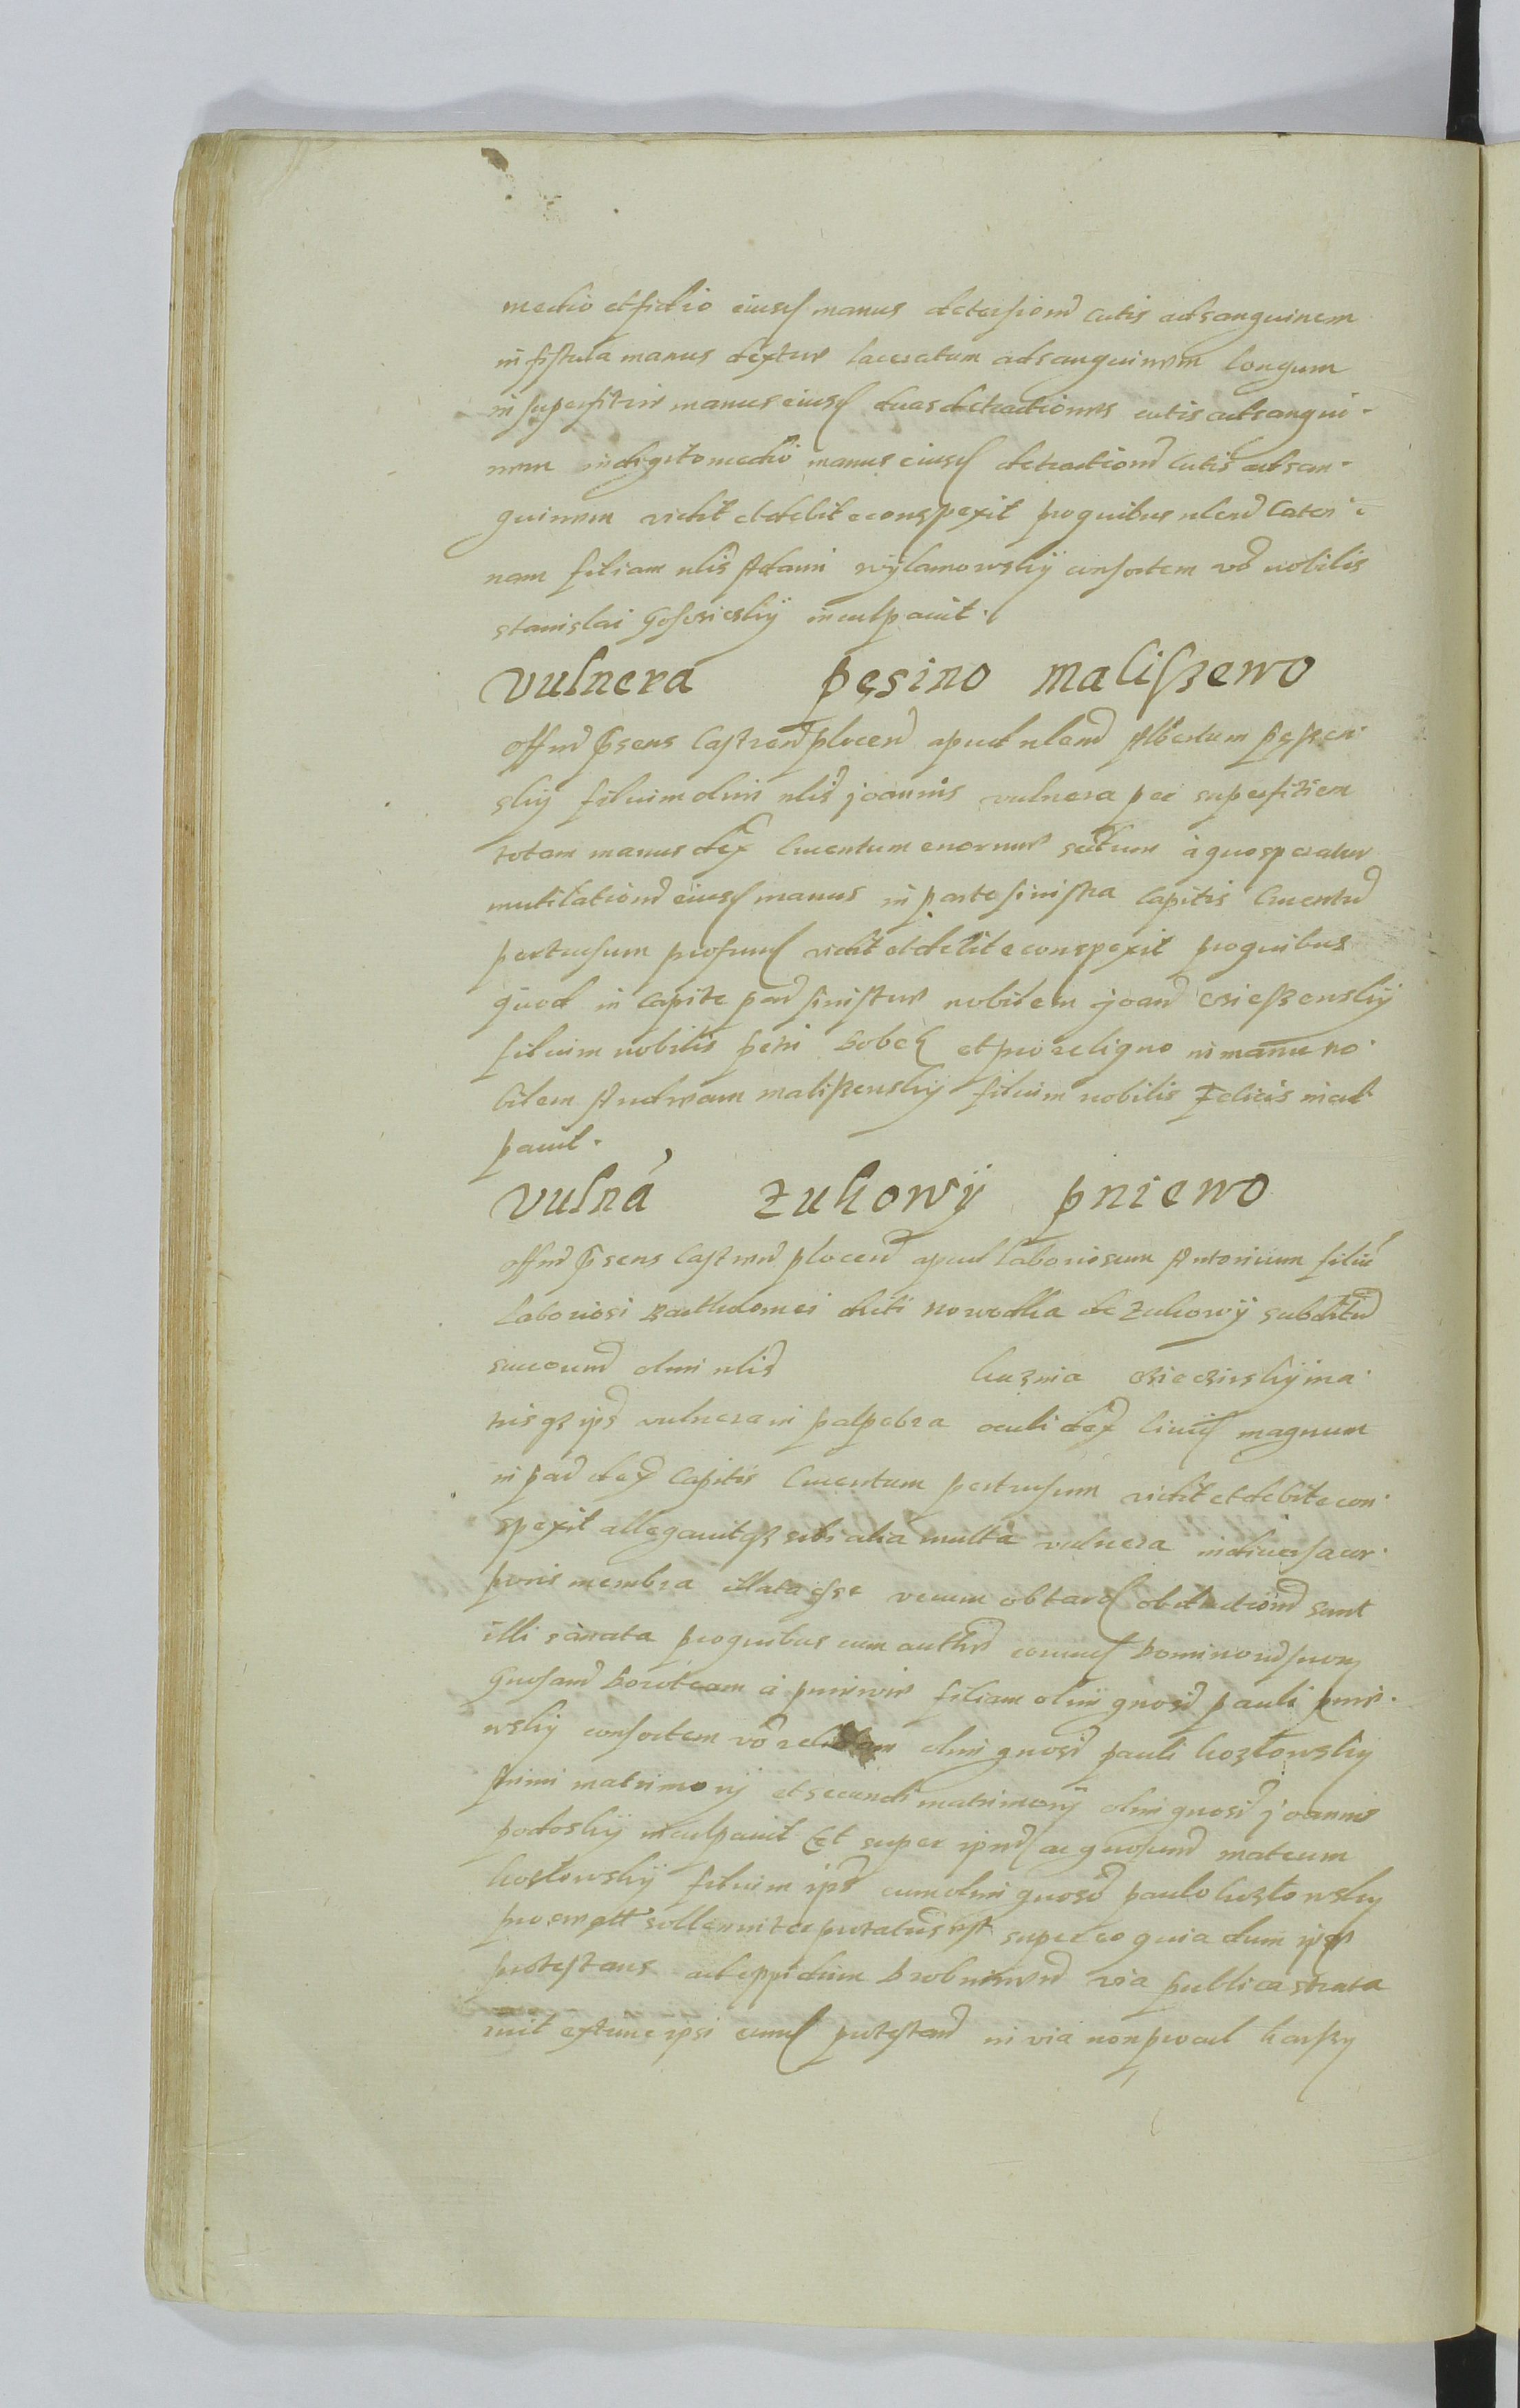 medio et fidio eiusd manus detersiond cutis ad sanguinem
in fistula manus dextre laceratum ad sanguinem longum
in superfitie manus eiusd duas detractiones cutis ad sangui-
nem in digito medio manus eiusd detractiond cutis ad san-
guinem vidit et debite conspexit pro quibus nlend Cateri-
nam filiam nlis Adami wÿlamowskÿ consortem vo nobilis
stanislai inculpauit.
Vulnera pęsino Maliſzewo
Offnd p̃sens Castrend plocend apud nlend Albertum
skÿ filium olim nlis joannis vulnera per superfitiem
totam manus dex cruentum enorme sectum a quo speratur
mutilationd eiusd manus in parte sinistra capitis cruentu
pertusum profund vidit et debite conspexit pro quibus
quod in capite par sinistre nobilem joand
filium nobilis petri bobek et pro religuo in manu no-
bilem Andream maliszewskÿ filium nobilis Felicis incul
pauit.
Vulnã zukowÿ pniewo
Offnd p̃sens Castrend plocend apud laboriosum Antonium filiu
laboriosi Barthlomei dicti nowodka de zukowÿ subditu
succound olim nlis kuznia ma-
tris ips vulnera in palpebra oculi dex liuid magnum
in par dex capitis cruentum pertusum vidit et debite con-
spexit allegauitqz sibi alia multa vulnera in diuersa cor-
poris membra illata esse verum ob tard obductiond sunt
illi sanata pro quibus cum authe eorund Dominord suor
Gnosand Doroteam a pniewie filiam olim gnosi pauli pnie-
wskÿ consortem vo relictam olim gnosi pauli kozlowskÿ
primi matrimonÿ et secundi matrimonÿ olim gnosi joannis
podoskÿ inculpauit Et super ipnd ac gnosund mateum
kozlowskÿ filium ips cum olim gnoso paulo kozlowskÿ
sollenniter est super eo quia dum ipse
protestans ad oppidum via publica strata
iuit extunc ipsi eund protestand in via non procul